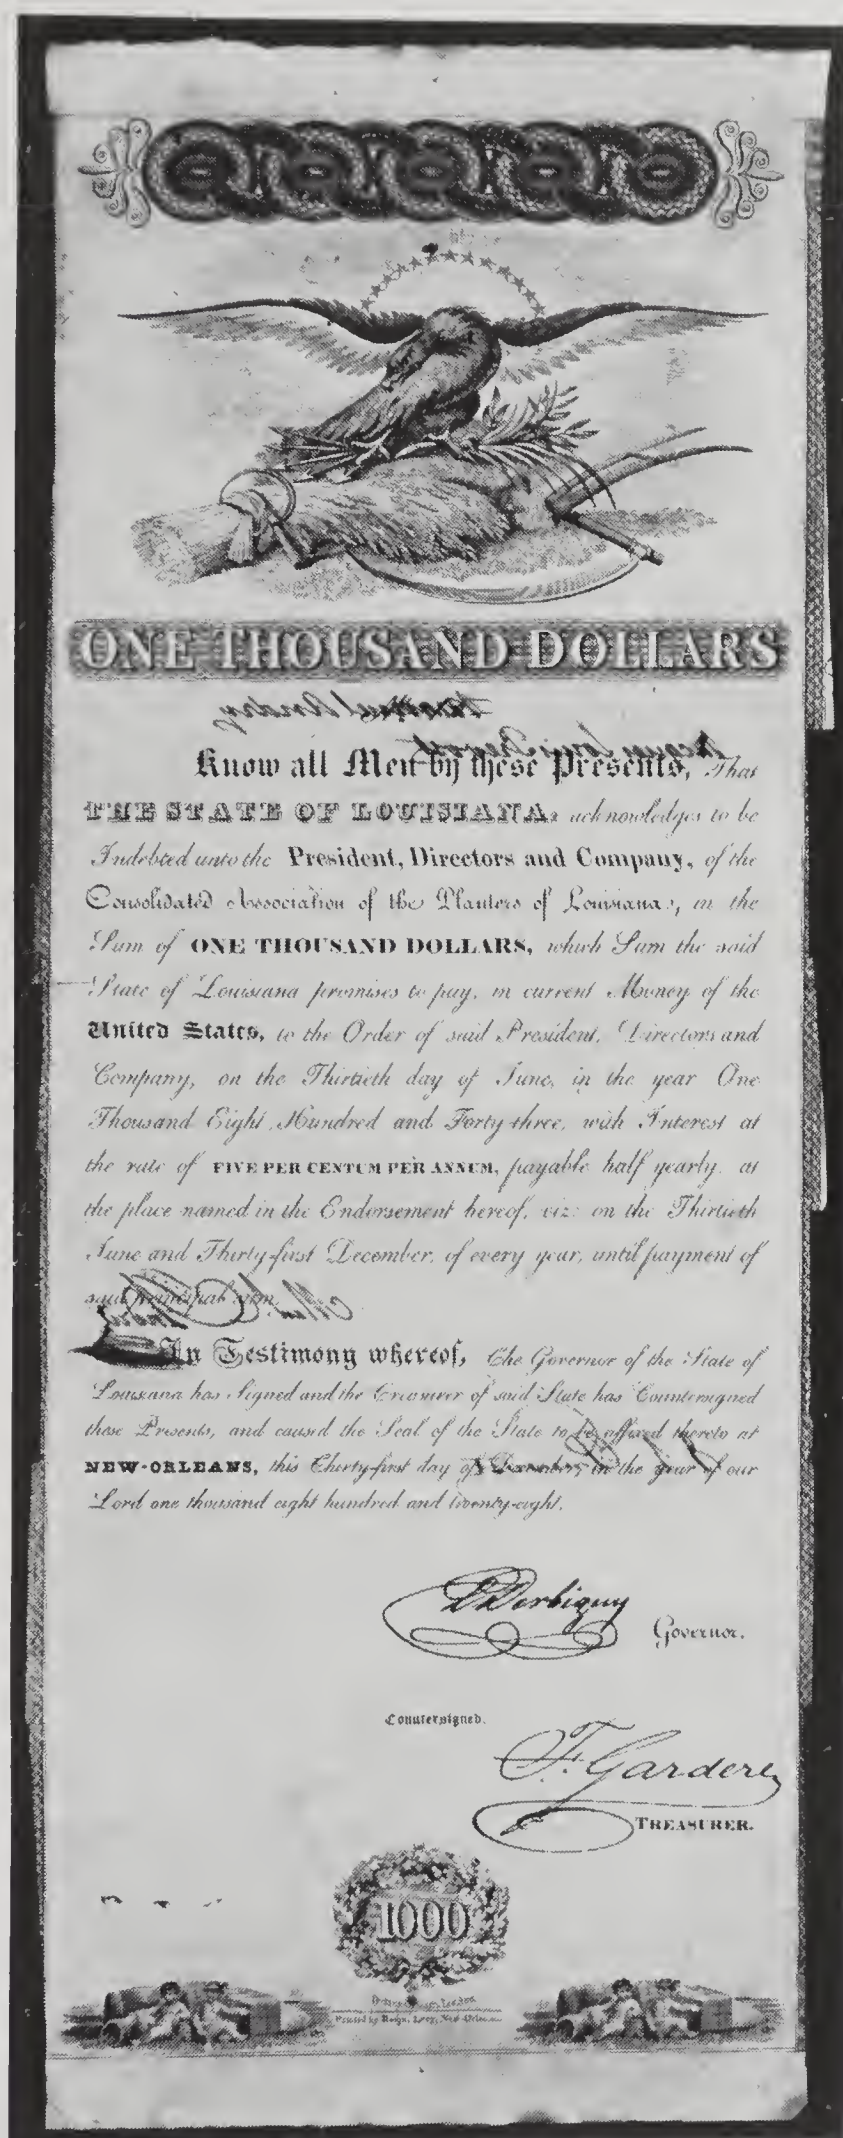 ONE THOUSAND DOLLARS
Know all Men by these Presents, That
THE STATE OF LOUISIANA, acknowledges to be
Indebted unto the President, Directors and Company, of the
Consolidated Association of the Planters of Louisiana, in the
Sum of ONE THOUSAND DOLLARS, which Sum the said
State of Louisiana promises to pay, in current Money of the
United States, to the Order of said President, Directors and
Company, on the Thirtieth day of June, in the year One
Thousand Eight Hundred and Forty-three, with Interest at
the rate of FIVE PER CENTUM PER ANNUM, payable half yearly, at
the place named in the Endorsement hereof, viz: on the Thirtieth
June and Thirty-first December, of every year, until payment of
said principal sum.
In Testimony whereof, The Governor of the State of
Louisiana has Signed and the Treasurer of said State has Countersigned
these Presents, and caused the Seal of the State to be affixed thereto at
NEW-ORLEANS, this Thirty-first day of December, in the year of our
Lord one thousand eight hundred and twenty-eight.
P Derbigny
Governor.
Countersigned.
F. Gardere
TREASURER.
1000
London
Printed by Benj. Levy, New-Orleans.